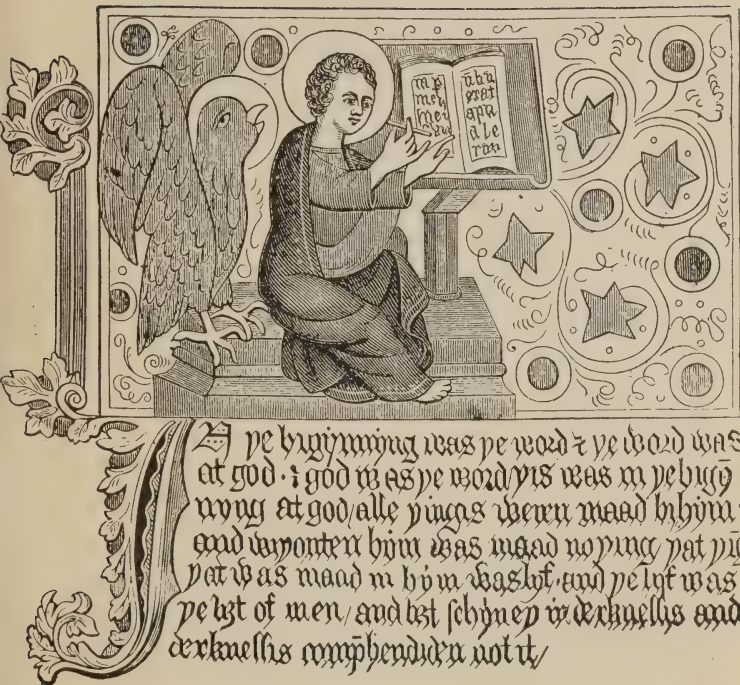 erat
apu
IN þe bigynnyng was þe word ⁊ þe word was
at god · ⁊ god was þe word / þis was in þe bigyn̄
nyng at god / alle þingis weren maad bi hym ·
and wiþouten hym was maad no þing / þat þīg
þat was maad in hym was lyf · and þe lyf was
þe liȝt of men / and liȝt schyneþ in derknessis and
derknessis comp̄hendiden not it /